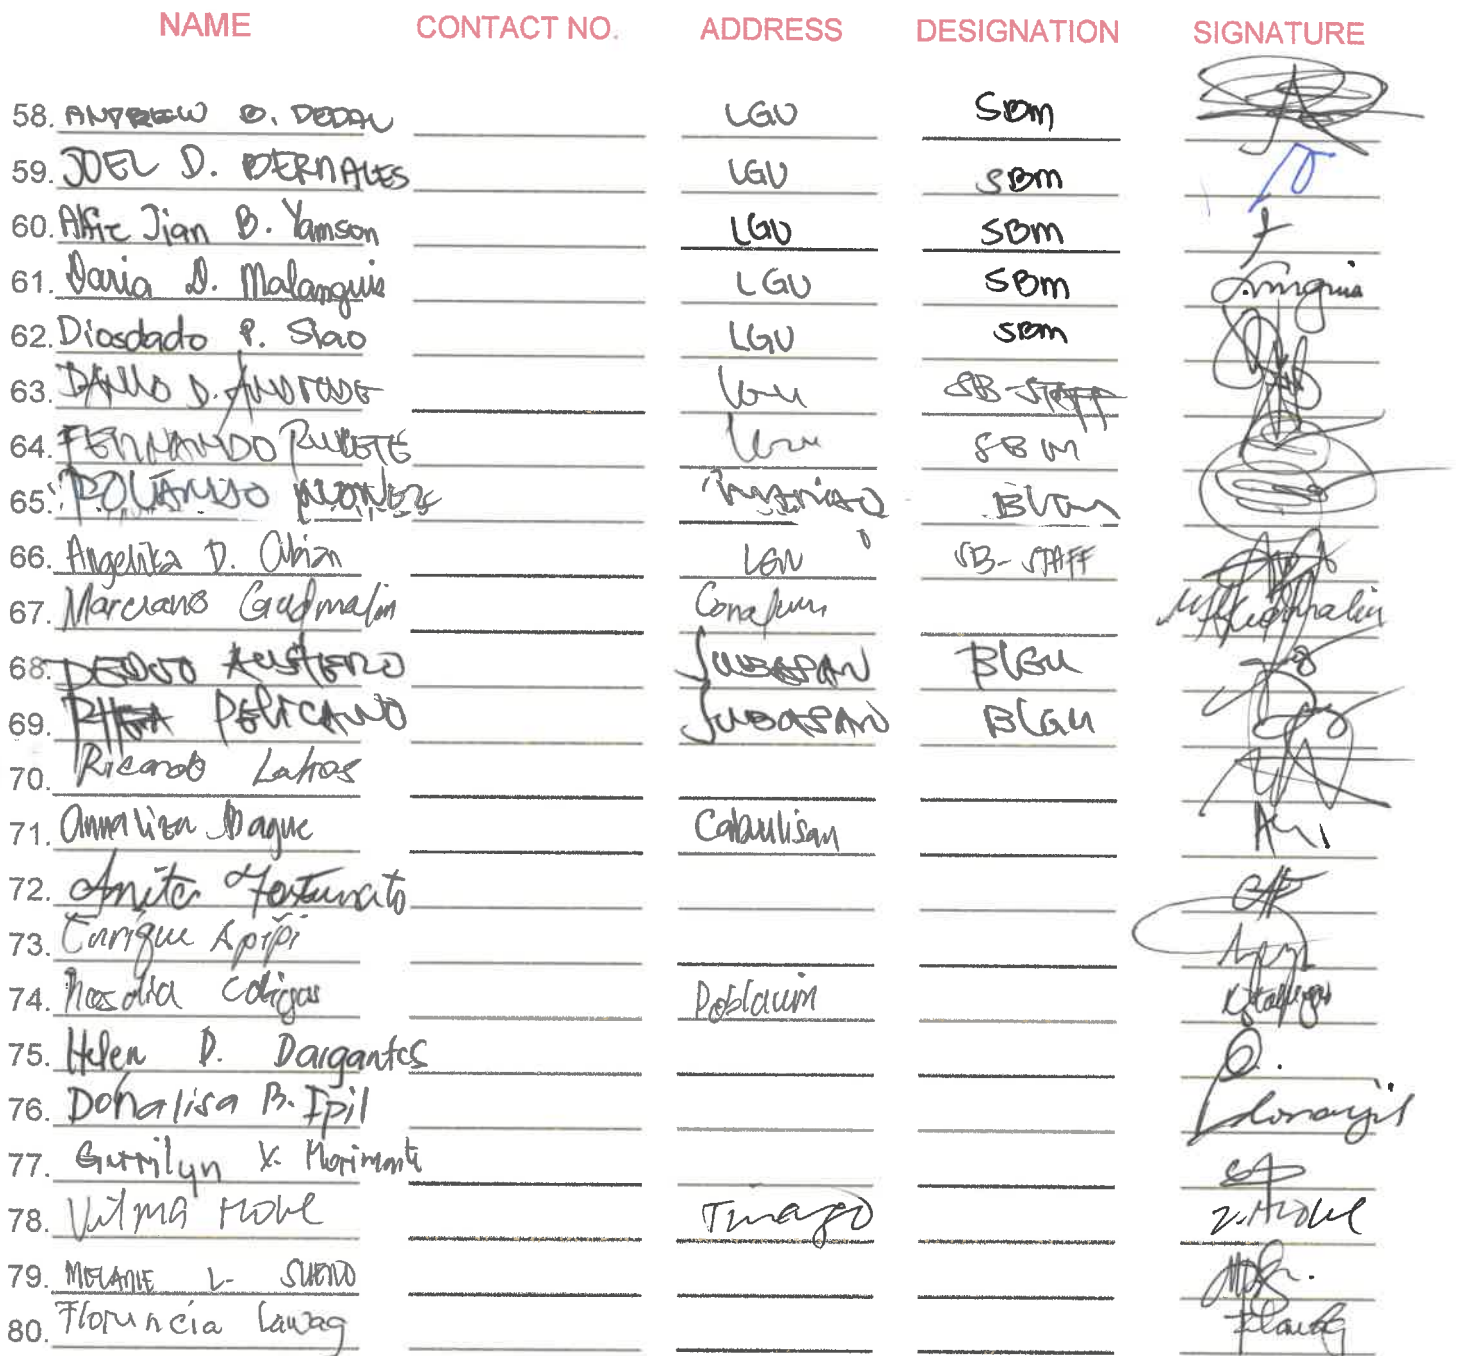 NAME CONTACT NO. ADDRESS DESIGNATION SIGNATURE
58. ANDREW B. DEDAL LGU SBM
59. JOEL D. BERNALES LGU SBM
60. Alfie Jian B. Yamson LGU SBM
61. Daria D. Malanguis LGU SBM
62. Diosdado P. Siao LGU SBM
63. DANILO D. ANDRADE LGU SB-STAFF
64. FERNANDO RUBETE LGU SBM
65. ROLANDO BLGU
66. Angelika D. Abian LGU SB-STAFF
67. Marciano Gudmalin
68. PEDRO AUSTERO SUBASPAN BLGU
69. RHEA PELICANO SUBASPAN BLGU
70. Ricardo
71. Annaliza Dague Cabulisan
72. Anita Fortunato
73. Enrique Apipi
74. Poblacion
75. Helen D. Dargantes
76. Donalisa B. Ipil
77. Gerrilyn
78. Vilma Mohl Tinago V. Mohl
79. MELANIE L. SUENO
80. Florencia Lawag